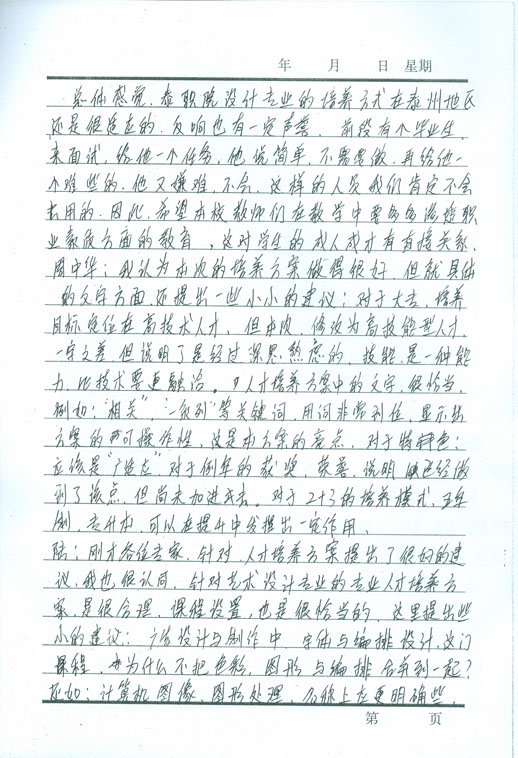 年 月 日 星期
总体感觉,泰职院设计专业的培养方式在泰州地区
还是很适应的,反响也有一定声誉。前段有个毕业生,
来面试,给他一个任务,他说简单,不需要做,再给他一
个难些的,他又嫌难,不会,这样的人员我们肯定不会
去用的,因此,希望本校教师们在教学中要多多渗透职
业素质方面的教育,这对学生的成人成才有直接关系。
周中华:我认为本次的培养方案做得很好,但就具体
的文字方面,还提出一些小小的建议:对于过去,培养
目标定位在高技术人才,但本次,修改为高技能型人才,
一字之差但说明了是经过深思熟虑的,技能是一种能
力,比技术要更融洽。人才培养方案中的文字,很恰当,
例如:"相关","一系列"等关键词,用词非常到位,显示出
方案的可操作性,这是本方案的亮点,对于特色:
应该是"广适应",对于例年的获奖,荣誉,说明已经做
到了该点,但尚未加进去。对于2+3的培养模式,五年
制,专升本,可以在提升中发挥出一定作用、
陆:刚才各位专家,针对人才培养方案提出了很好的建
议,我也很认同,针对艺术设计专业的专业人才培养方
案,是很合理,课程设置,也是很恰当的,这里提出些
小的建议:广告设计与制作中,字体与编排设计,这门
课程,为什么不把色彩,图形与编排合并到一起?
还如:计算机图像、图形处理,名称上在更明确些,
第 页